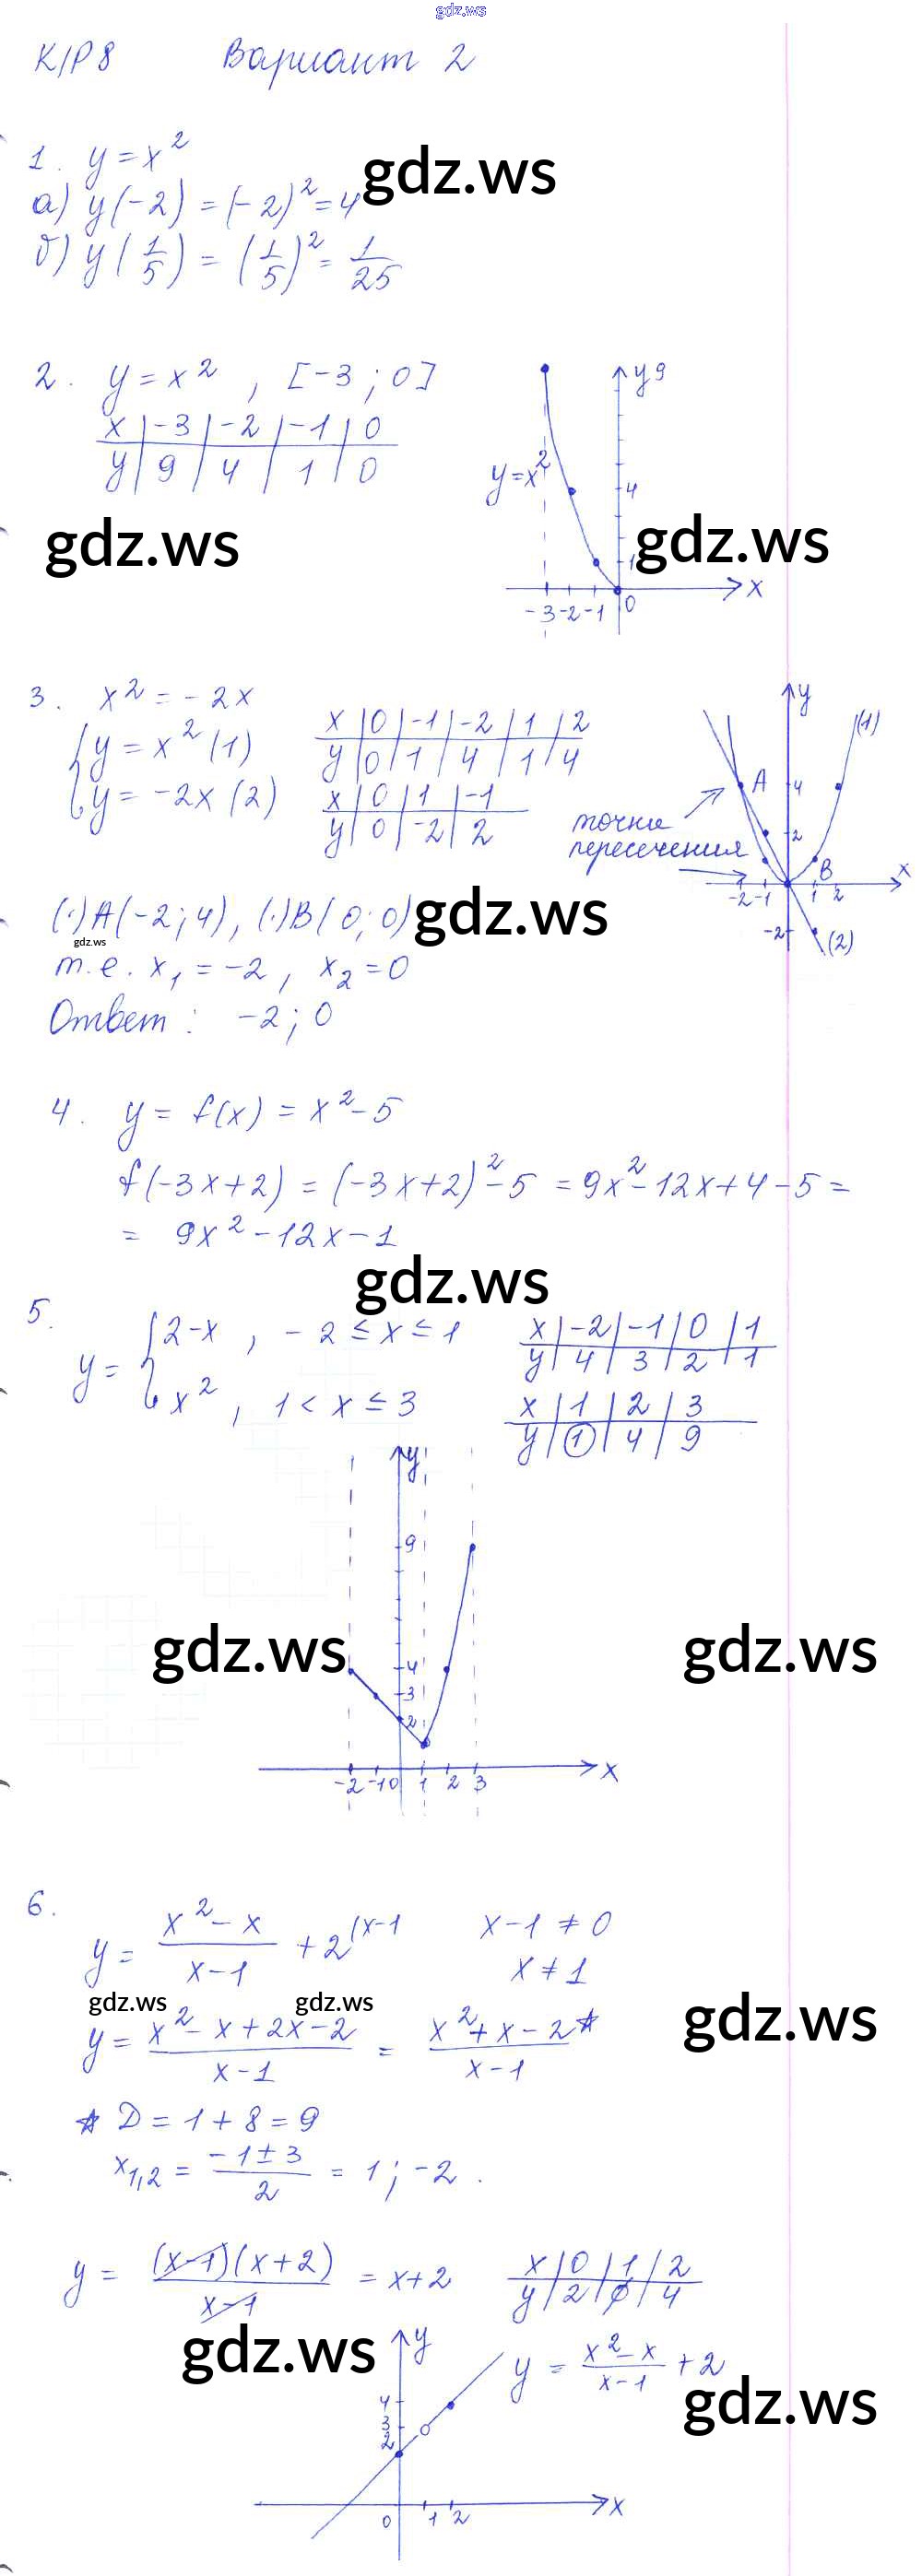 gdz.ws
К/Р 8 Вариант 2
1. y = x²
gdz.ws
а) y(-2) = (-2)² = 4
б) y(1/5) = (1/5)² = 1/25
2. y = x², [-3; 0]
x | -3 | -2 | -1 | 0
y | 9 | 4 | 1 | 0
y 9
y = x²
4
1
-3 -2 -1 0 x
gdz.ws
gdz.ws
3. x² = -2x
{ y = x² (1)
y = -2x (2)
x | 0 | -1 | -2 | 1 | 2
y | 0 | 1 | 4 | 1 | 4
x | 0 | 1 | -1
y | 0 | -2 | 2
y
(1)
A 4
2
B x
-2 -1 1 2
-2 (2)
точки
пересечения
(·)A(-2; 4), (·)B(0; 0)
gdz.ws
gdz.ws
т.е. x₁ = -2, x₂ = 0
Ответ: -2; 0
4. y = f(x) = x² - 5
f(-3x+2) = (-3x+2)² - 5 = 9x² - 12x + 4 - 5 =
= 9x² - 12x - 1
gdz.ws
5. y = { 2-x, -2 ≤ x ≤ 1
x², 1 < x ≤ 3
x | -2 | -1 | 0 | 1
y | 4 | 3 | 2 | 1
x | 1 | 2 | 3
y | 1 | 4 | 9
y
9
4
3
2
-2 -1 0 1 2 3 x
gdz.ws
gdz.ws
6. y = (x² - x)/(x-1) + 2 (x-1 x-1 ≠ 0
x ≠ 1
gdz.ws
gdz.ws
gdz.ws
y = (x² - x + 2x - 2)/(x-1) = (x² + x - 2*)/(x-1)
* D = 1 + 8 = 9
x₁,₂ = (-1 ± 3)/2 = 1; -2.
y = (x-1)(x+2)/(x-1) = x+2
x | 0 | 1 | 2
y | 2 | ø | 4
gdz.ws
y
y = (x² - x)/(x-1) + 2
gdz.ws
4
3
2
0 1 2 x